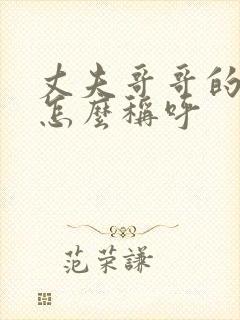 丈夫哥哥的
怎麼稱呼
范荣謙